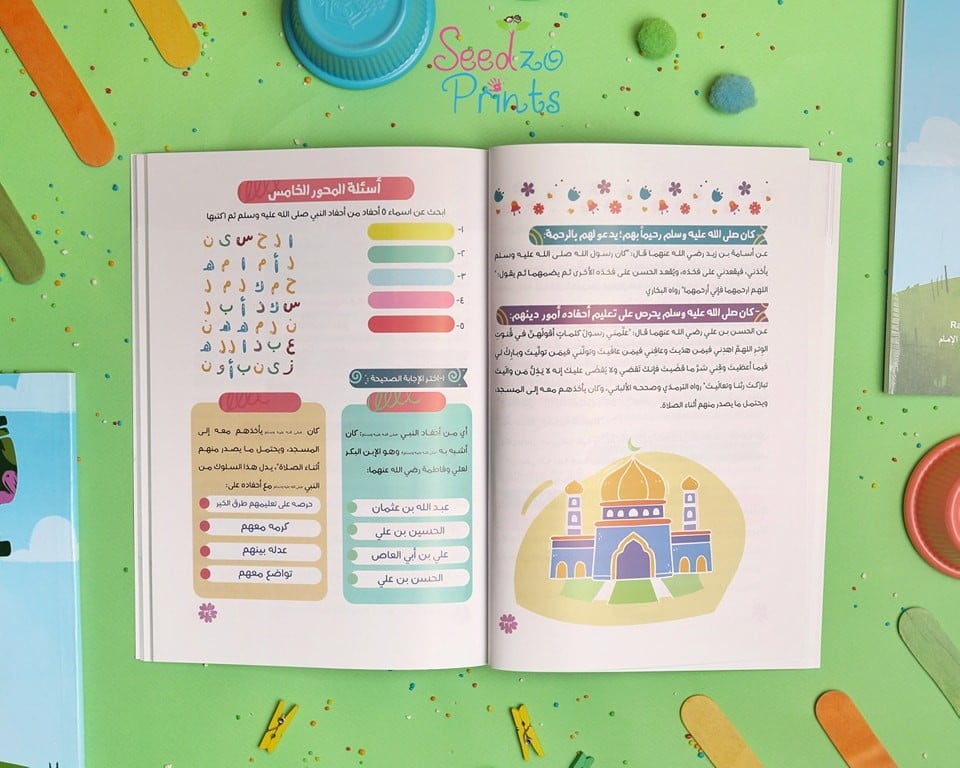 Seedzo
Prints
- كان صلى الله عليه وسلم رحيماً بهم؛ يدعو لهم بالرحمة:
عن أسامة بن زيد رضي الله عنهما قال: "كان رسول الله صلى الله عليه وسلم
يأخذني، فيقعدني على فخذه، ويُقعد الحسن على فخذه الأخرى ثم يضمهما ثم يقول: "
اللهم ارحمهما فإني أرحمهما" رواه البخاري
- كان صلى الله عليه وسلم يحرص على تعليم أحفاده أمور دينهم:
عن الحسن بن علي رضي الله عنهما قال: "علَّمني رسولُ كلماتٍ أقولُهنَّ في قُنوتِ
الوترِ اللهمَّ اهدِني فيمَن هدَيتَ وعافِني فيمَن عافيتَ وتولَّني فيمَن تولَّيتَ وبارِكْ لي
فيما أعطَيتَ وقِني شرَّ ما قضَيتَ فإنكَ تَقضي ولا يُقضى عليك إنه لا يَذِلُّ مَن والَيتَ
تباركتَ ربَّنا وتعالَيتَ" رواه الترمذي وصححه الألباني، وكان يأخذهم معه إلى المسجد،
ويحتمل ما يصدر منهم أثناء الصلاة.
أسئلة المحور الخامس
ابحث عن اسماء ٥ أحفاد من أحفاد النبي صلى الله عليه وسلم ثم اكتبها
١-
٢-
٣-
٤-
٥-
ا ل ح س ي ن
ح م ك ل م ل
س ك ذ أ ب ل
ن ل م ه ه ن
ع ب د ا ل ل ه
ز ي ن ب أ و ن
١-اختر الإجابة الصحيحة :
أي من أحفاد النبي صلى الله عليه وسلم: كان
أشبه به صلى الله عليه وسلم وهو الإبن البكر
لعلي وفاطمة رضي الله عنهما:
عبد الله بن عثمان
الحسين بن علي
علي بن أبي العاص
الحسن بن علي
كان صلى الله عليه وسلم يأخذهم معه إلى
المسجد، ويحتمل ما يصدر منهم
أثناء الصلاة"، يدل هذا السلوك من
النبي صلى الله عليه وسلم مع أحفاده على:
حرصه على تعليمهم طرق الخير
كرمه معهم
عدله بينهم
تواضع معهم